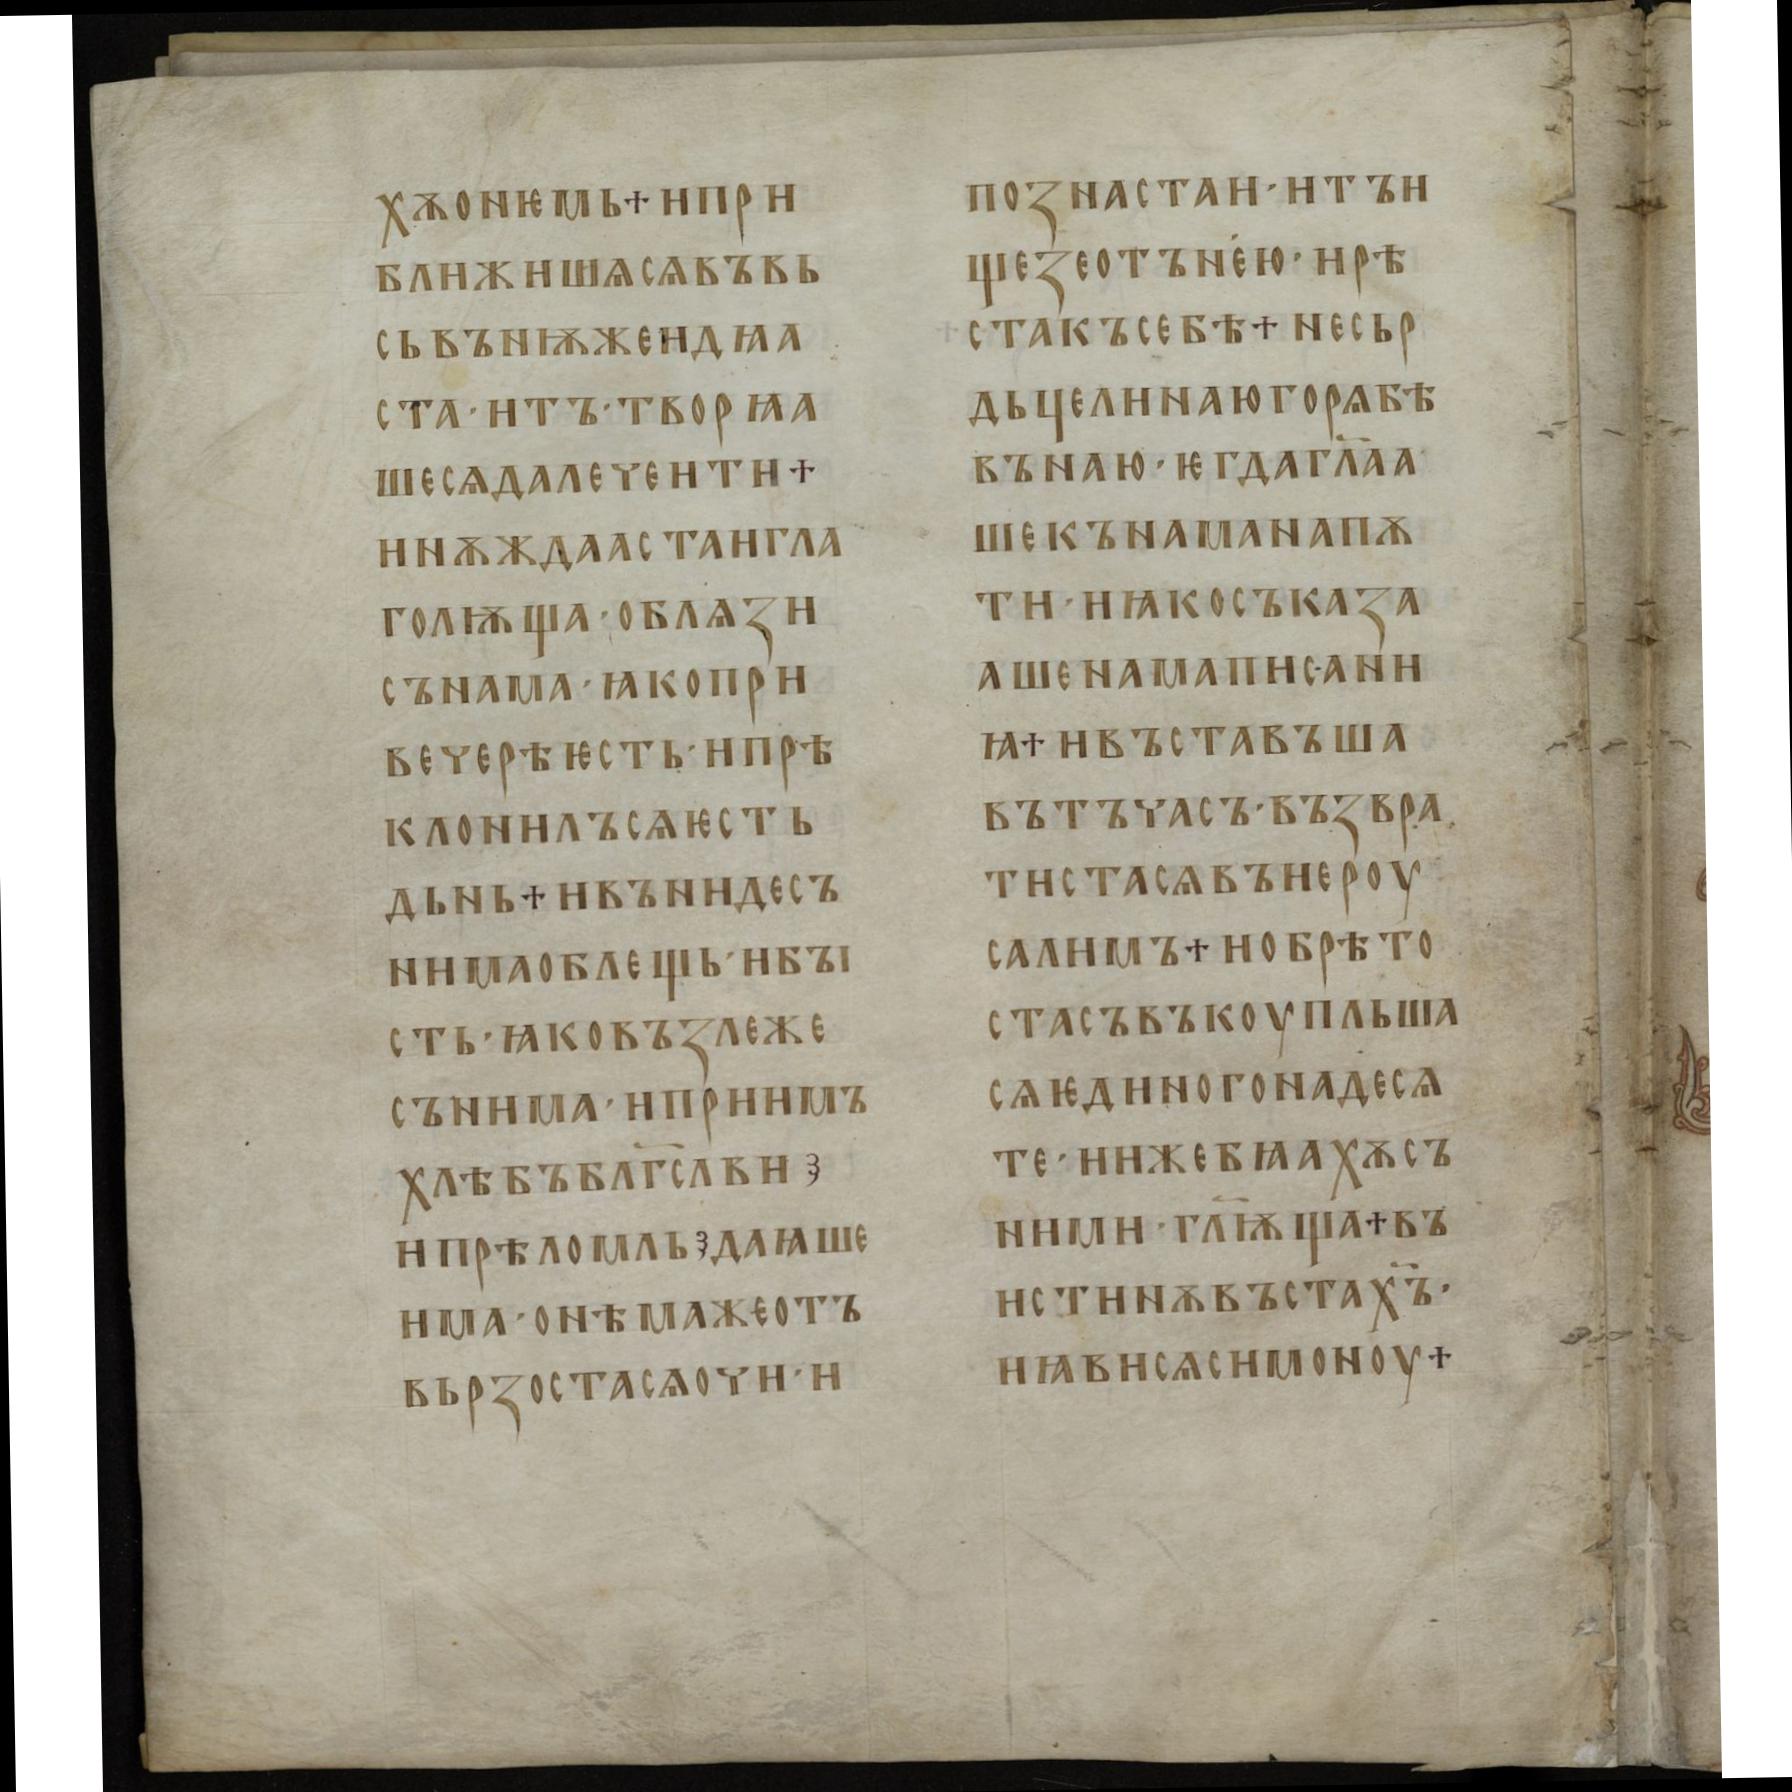 хѫонѥмь+ипри
ближишѧсѧвъвь
сьвънѭжеидꙗа
ста·итъ·творꙗа
шесѧдалеченти+
инѫждаастаигла
голѭща·облѧзи
сънама·ꙗкопри
вечерѣѥсть·ипрѣ
клонилъсѧѥсть
дьнь+ивъниде съ
нимаоблещь·нбъі
сть·ꙗковъзлеже
съни ма·ипри имъ
хлѣбъбл҃гс҃лви ꙁ
ипрѣломль ꙁ даꙗше
има·онѣмажеотъ
вьрзостасѧочи·и
познастаи·итъи
щезеотънею·ирѣ
стакъсебѣ+несьр
дьцелинаюгорѧбѣ
вънаю·ѥгдагл҃аа
шекънаманапѫ
ти·иꙗкосъказа
ашенамаписани
ꙗ+ивъставъша
вътъчасъ·възвра
тистасѧвъиероу
салимъ+иобрѣто
стасъвъкоупльша
сѧѥдиногонадесѧ
те·иижебꙗахѫсъ
ними·гл҃ѭща+въ
истинѫвъстах҃ъ·
иꙗвисѧсимоноу+